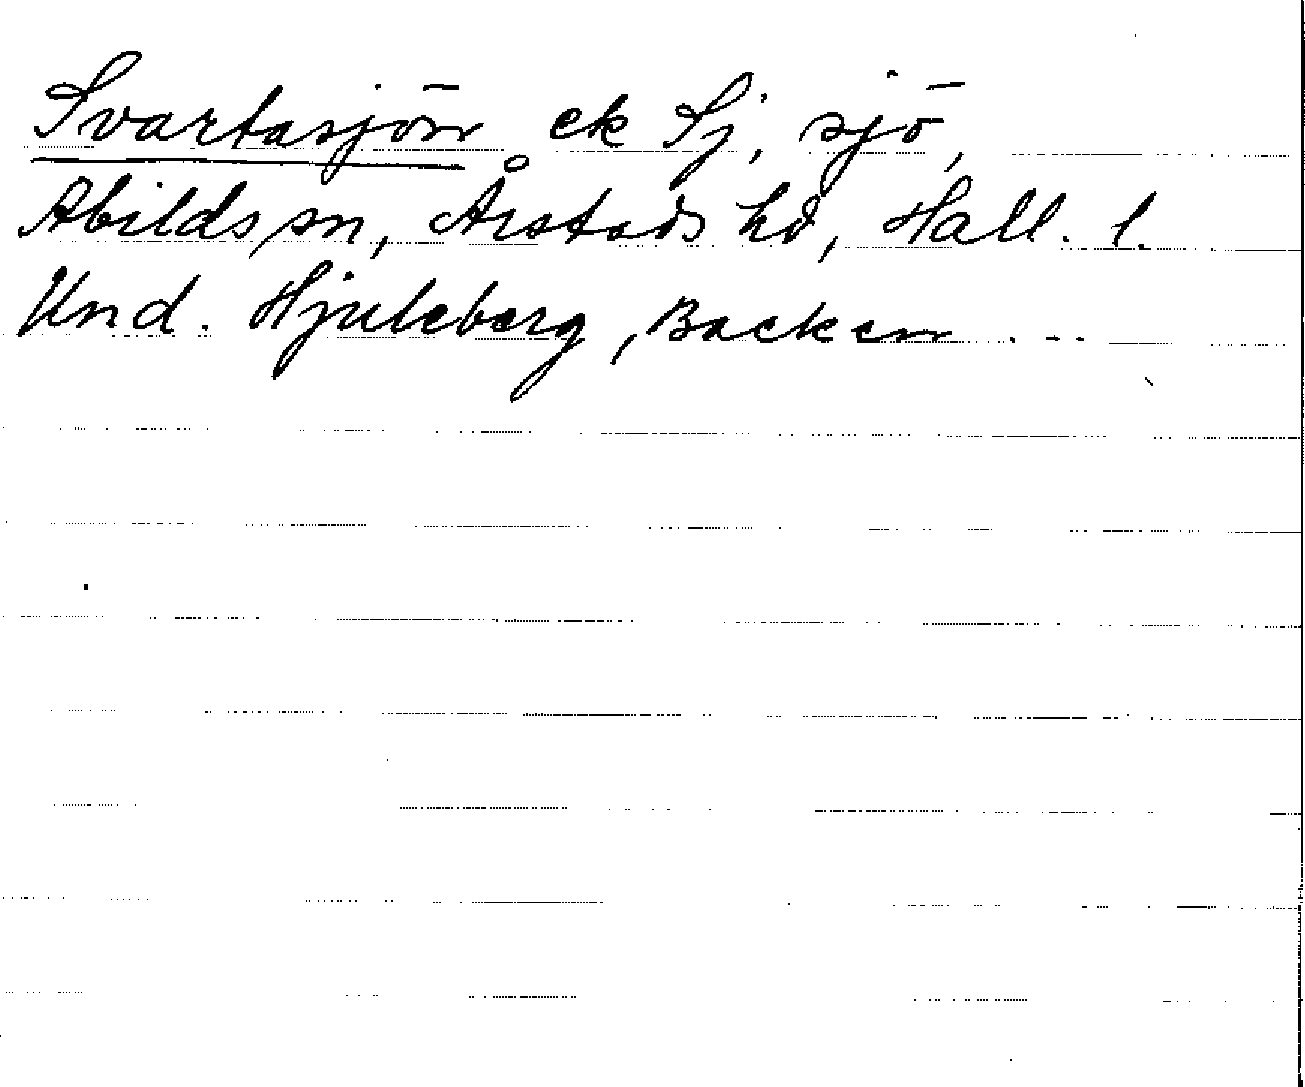 Svartasjön ek Sj, sjö,
Abilds sn, Årstads hd, Hall. l.
Und. Hjuleberg, Backen . - -